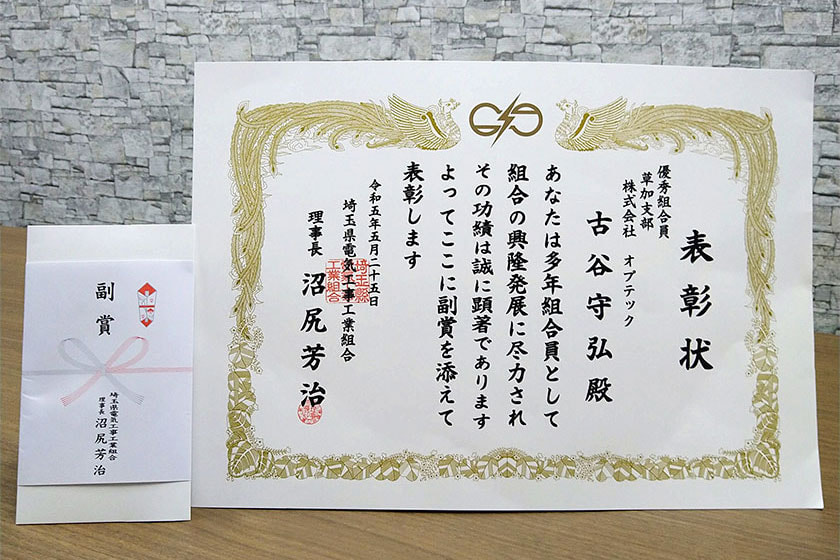 表彰状
優秀組合員
草加支部
株式会社 オプテック
古谷守弘殿
あなたは多年組合員として
組合の興隆発展に尽力され
その功績は誠に顕著であります
よってここに副賞を添えて
表彰します
令和五年五月二十五日
埼玉県電気工事工業組合
理事長 沼尻芳治
副賞
埼玉県電気工事工業組合
理事長 沼尻芳治